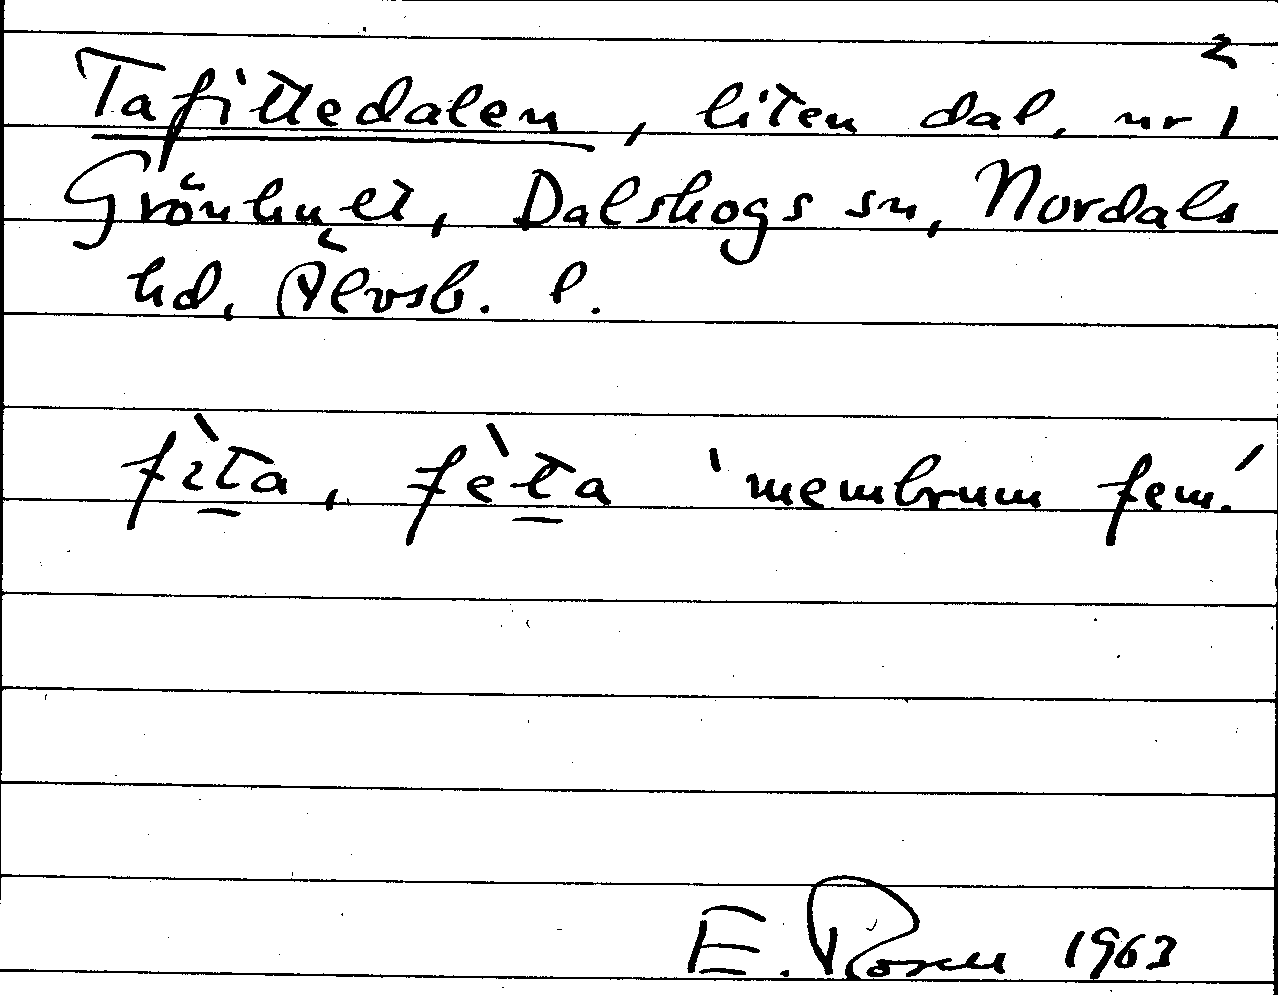 2
Tafittedalen, liten dal, nr 1
Grönhult, Dalskogs sn, Nordals
hd, Älvsb. l.
fìta, fèta 'membrum fem.'
E. Rosell 1963